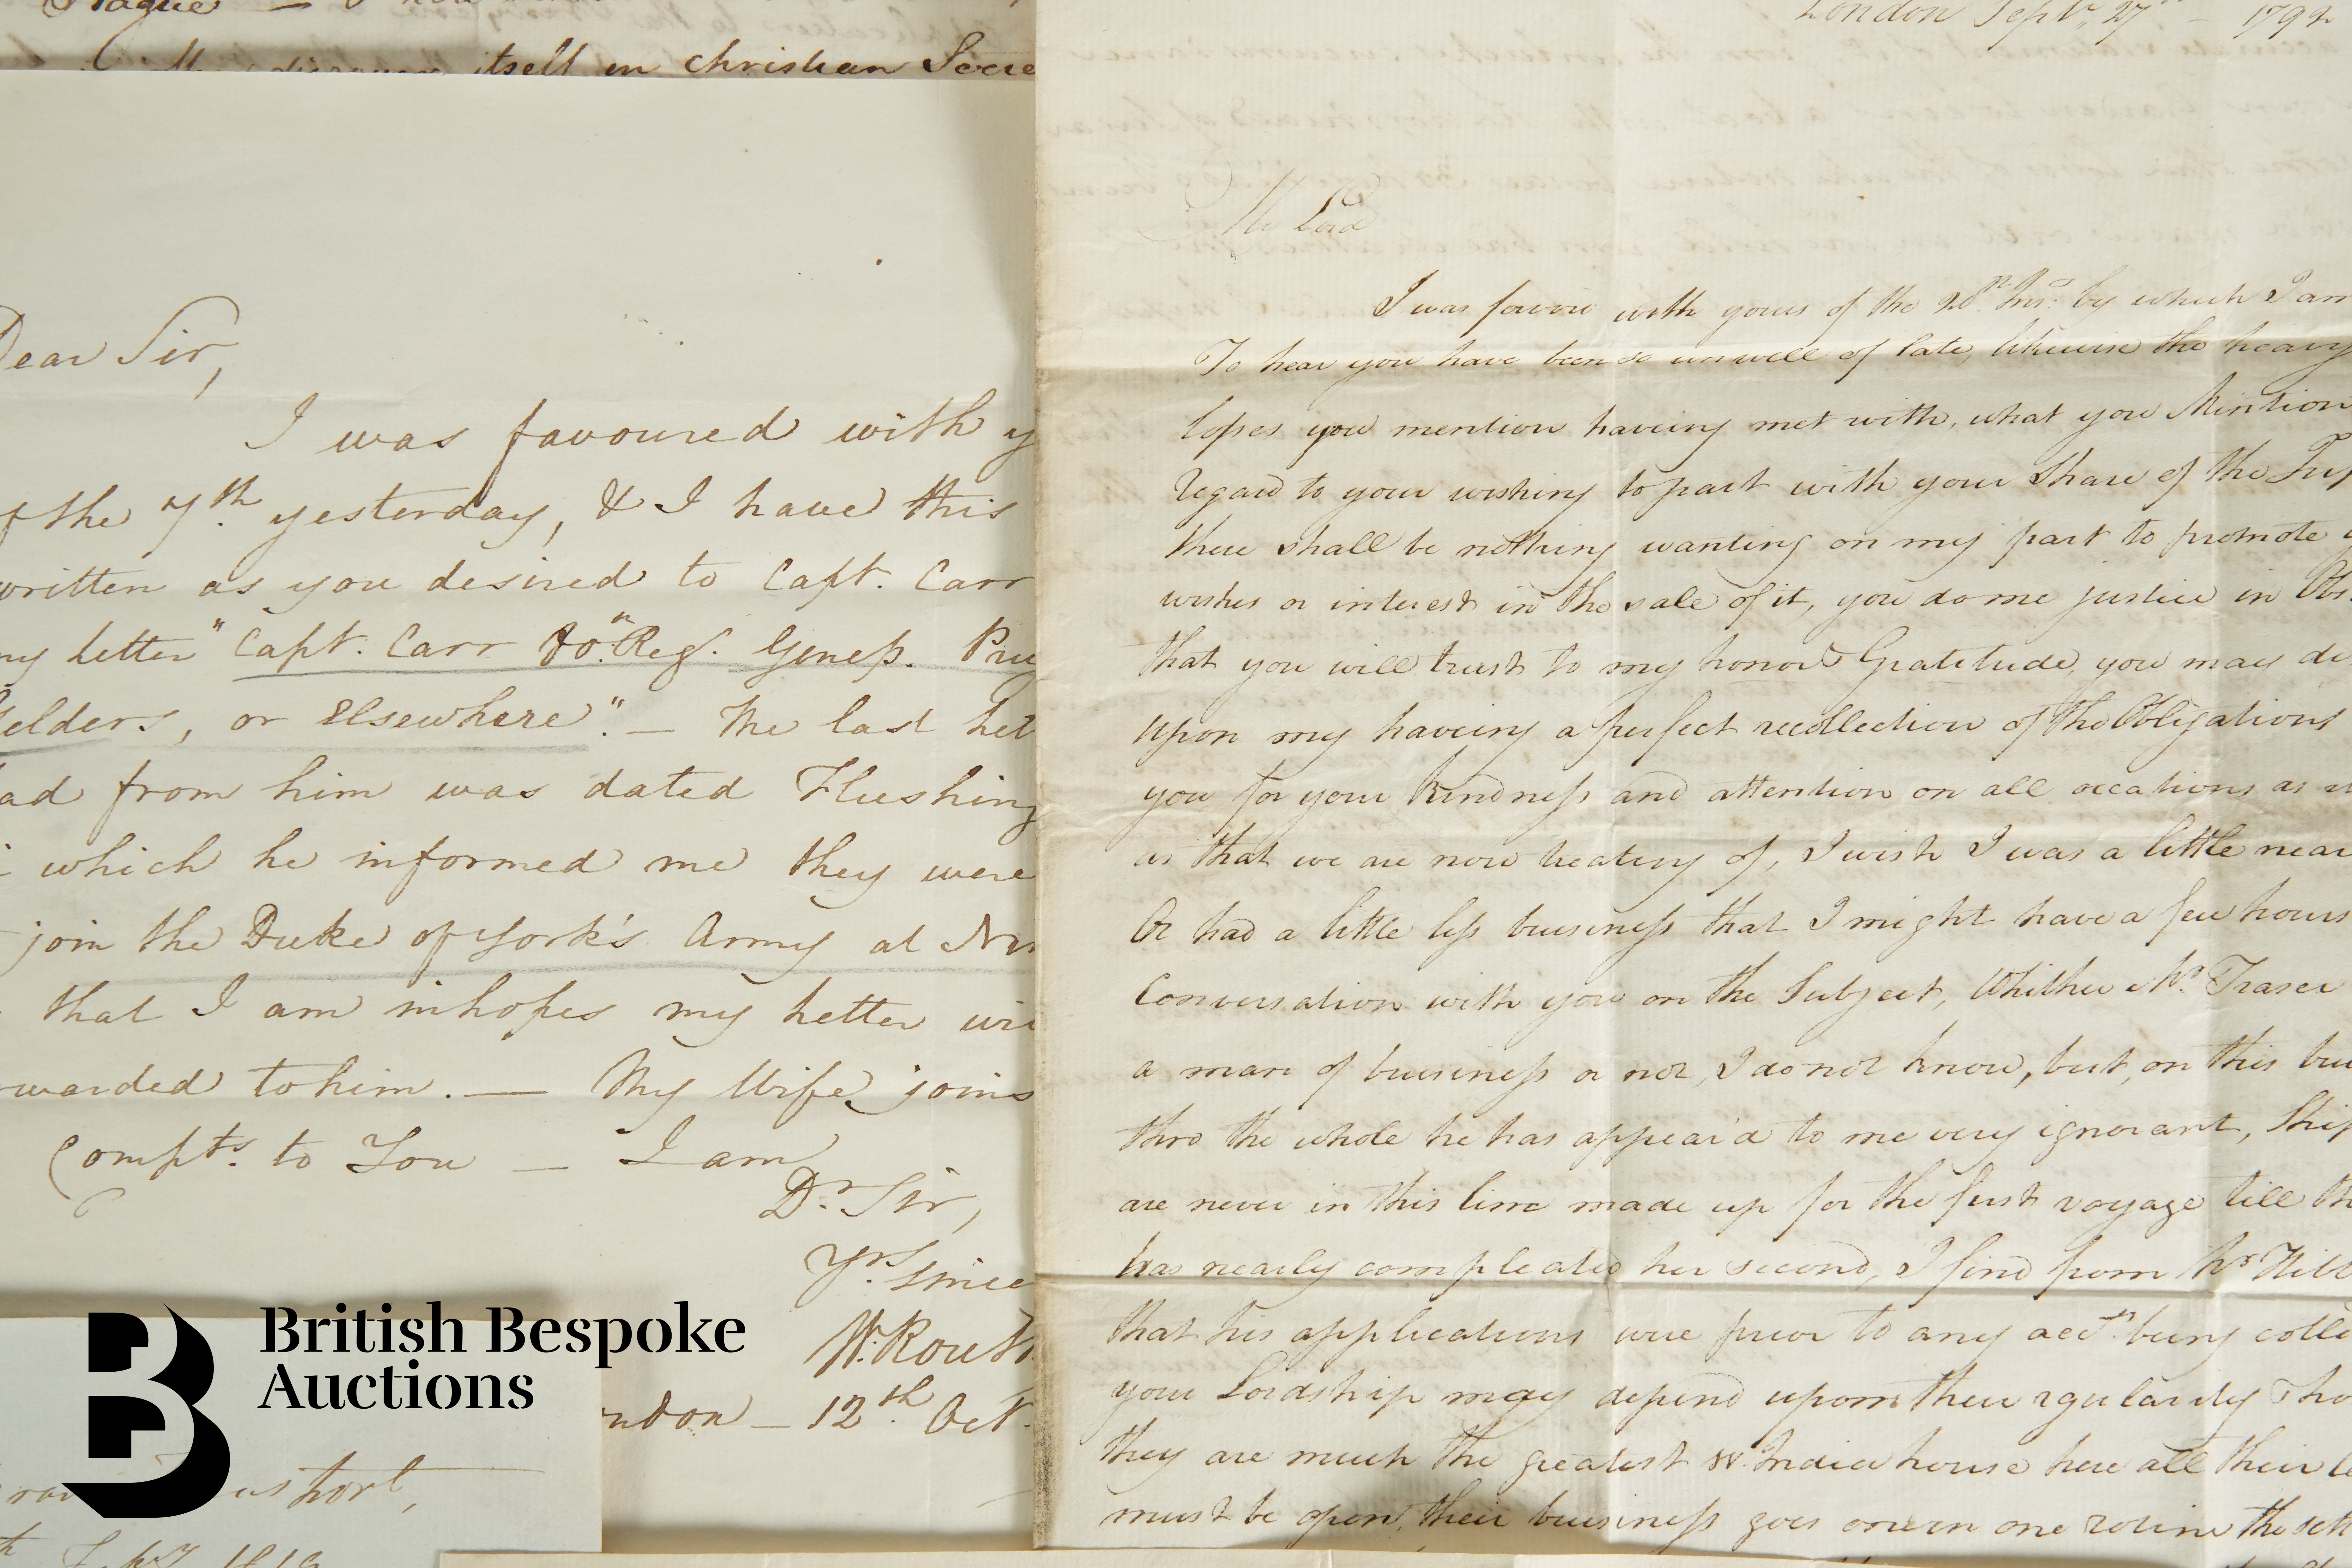 itself in christian
Dear Sir,
I was favoured with y
of the 7th. yesterday, & I have this
written as you desired to Capt. Carr
my letter "Capt. Carr
elders, or Elsewhere". — The last let
ad from him was dated Flushing
which he informed me they were
join the Duke of York's Army at
that I am inhopes my letter wi
rwarded to him. — My Wife joins
Compts. to You — I am
Dr. Sir,
Yrs. since
W. Rout
ndon — 12th Oct.
London Septr. 27th — 1792
My Lord
I was favord with yours of the 20th. Inst. by which I am
To hear you have been so unwell of late, likewise the heavy
losses you mention having met with, what you Mention
Regard to your wishing to part with your Share of the
there shall be nothing wanting on my part to promote y
wishes or interest in the sale of it, you do me justice in
that you will trust to my honor & Gratitude, you may de
upon my having a perfect recollection of the Obligations
you for your kindness and attention on all occations as
as that we are now treating of, I wish I was a little near
Or had a little less buisiness that I might have a few hours
Conversation with you on the Subject, Whither Mr. Fraser
a man of buisiness or not, I do not know, but, on this bui
thro the whole he has appear'd to me very ignorant, Ship
are never in this time made up for the first voyage till th
has nearly compleated her second, I find from Mr
that his applications were prior to any acct. being colle
your Lordship may depend upon their regularity Tho
they are much the greatest W. India house here all their
must be open, their buisiness goes on in one rotine the sett
British Bespoke
Auctions